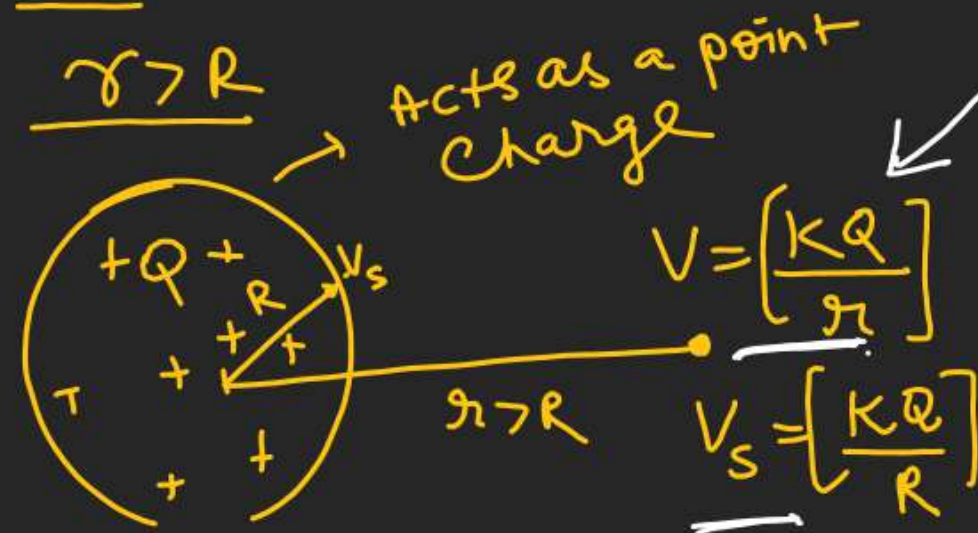 r > R
Acts as a point
charge
+ Q +
V_s
R
+ +
+
+
+
r > R
V = [KQ/r]
V_s = [KQ/R]